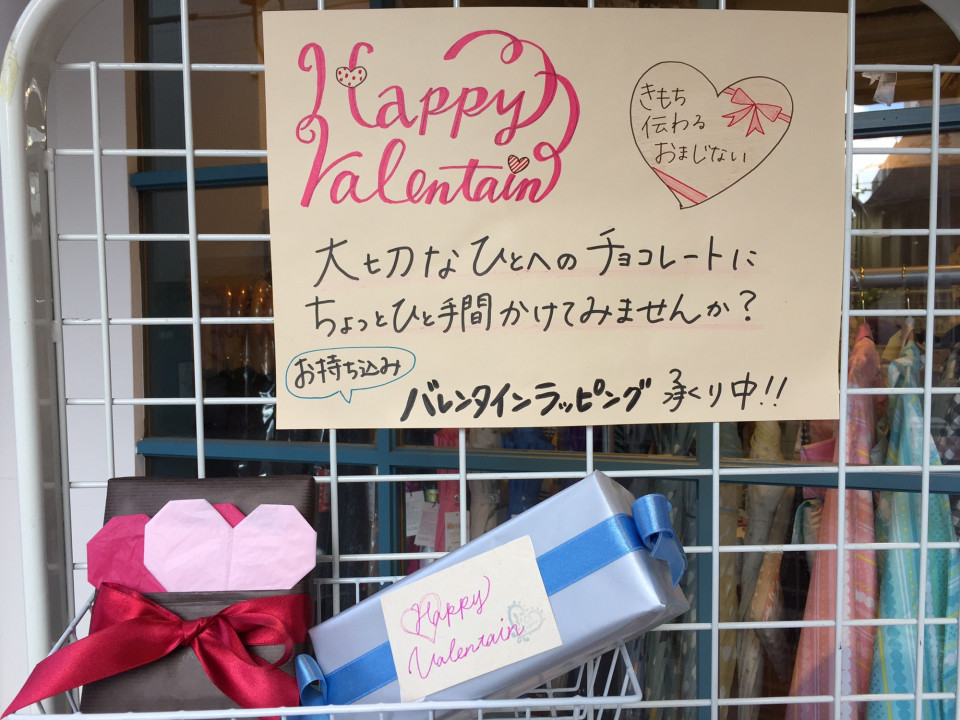 Happy
Valentain
きもち
伝わる
おまじない
大切なひとへのチョコレートに
ちょっとひと手間かけてみませんか?
お持ち込み
バレンタインラッピング 承くり中!!
Happy
Valentain